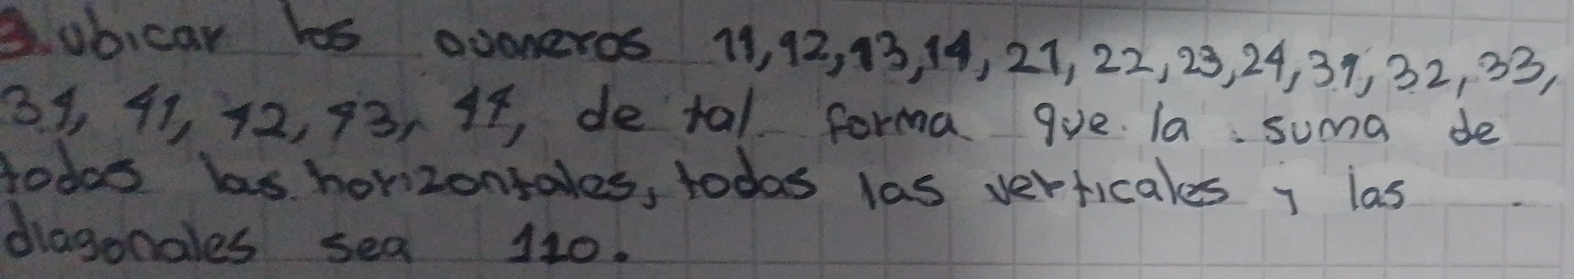 3. ubicar los números 11, 12, 13, 14, 21, 22, 23, 24, 31, 32, 33,
34, 41, 42, 43, 44, de tal forma que la suma de
todas las horizontales, todas las verticales y las
diagonales sea 110.